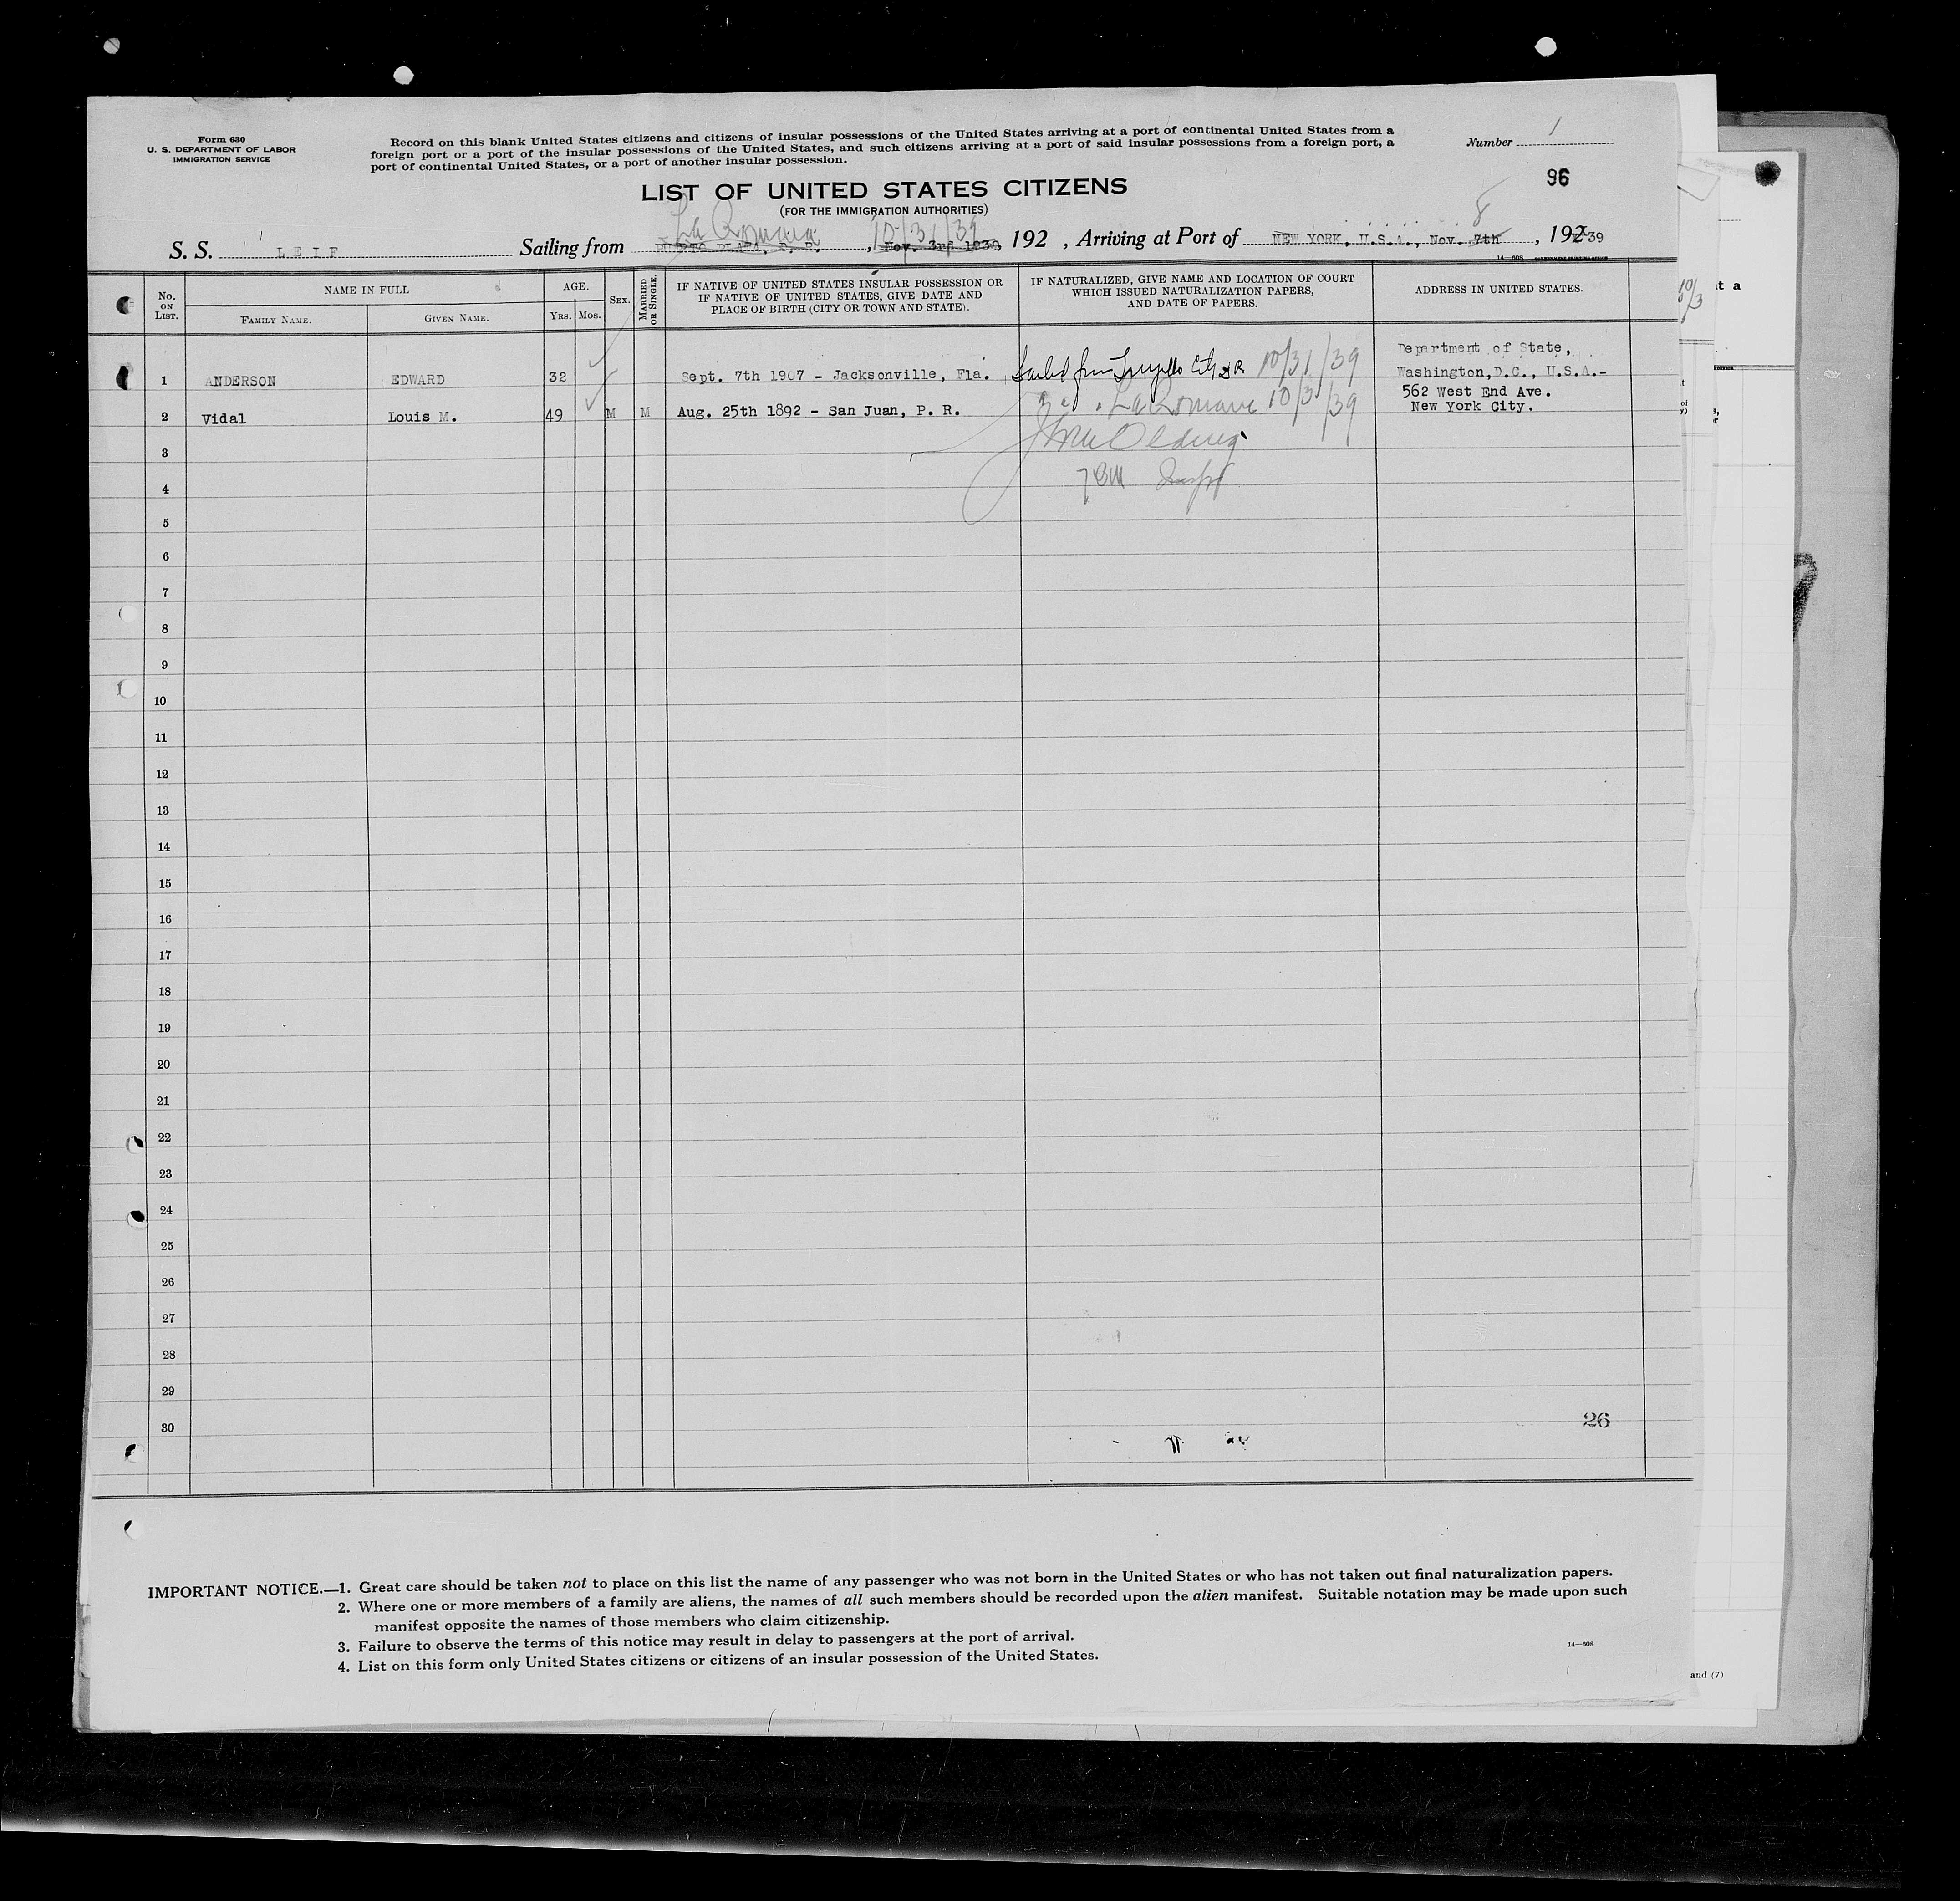 Form 630
U. S. DEPARTMENT OF LABOR
IMMIGRATION SERVICE
Record on this blank United States citizens and citizens of insular possessions of the United States arriving at a port of continental United States from a
foreign port or a port of the insular possessions of the United States, and such citizens arriving at a port of said insular possessions from a foreign port, a
port of continental United States, or a port of another insular possession.
Number 1
96
LIST OF UNITED STATES CITIZENS
(FOR THE IMMIGRATION AUTHORITIES)
La Romana 10/31/39 8
S. S. LEIF Sailing from PUERTO PLATA, D. R. , Nov. 3rd 1939 192 , Arriving at Port of NEW YORK, U.S.A., Nov. 7th , 192 39
14-608 GOVERNMENT PRINTING OFFICE
No. ON LIST.
NAME IN FULL
FAMILY NAME.
GIVEN NAME.
AGE.
YRS. MOS.
SEX.
MARRIED OR SINGLE.
IF NATIVE OF UNITED STATES INSULAR POSSESSION OR
IF NATIVE OF UNITED STATES, GIVE DATE AND
PLACE OF BIRTH (CITY OR TOWN AND STATE).
IF NATURALIZED, GIVE NAME AND LOCATION OF COURT
WHICH ISSUED NATURALIZATION PAPERS,
AND DATE OF PAPERS.
ADDRESS IN UNITED STATES.
10/3
t a
1 ANDERSON EDWARD 32 Sept. 7th 1907 - Jacksonville, Fla. Sailed from Trujillo City DR 10/31/39 Department of State,
Washington,D.C., U.S.A.-
2 Vidal Louis M. 49 M M Aug. 25th 1892 - San Juan, P. R. La Romana 10/31/39 562 West End Ave.
New York City.
3
4
Insp
5
6
7
8
9
10
11
12
13
14
15
16
17
18
19
20
21
22
23
24
25
26
27
28
29
30
26
IMPORTANT NOTICE.—1. Great care should be taken not to place on this list the name of any passenger who was not born in the United States or who has not taken out final naturalization papers.
2. Where one or more members of a family are aliens, the names of all such members should be recorded upon the alien manifest. Suitable notation may be made upon such
manifest opposite the names of those members who claim citizenship.
3. Failure to observe the terms of this notice may result in delay to passengers at the port of arrival.
4. List on this form only United States citizens or citizens of an insular possession of the United States.
14—608
and (7)